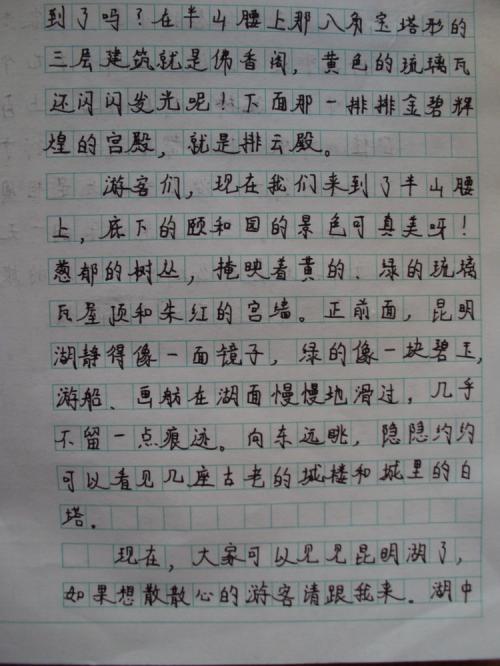 到了吗？在半山腰上那八角宝塔形的
三层建筑就是佛香阁，黄色的琉璃瓦
还闪闪发光呢！下面那一排排金碧辉
煌的宫殿，就是排云殿。
游客们，现在我们来到了半山腰
上，底下的颐和园的景色可真美呀！
葱郁的树丛，掩映着黄的、绿的琉璃
瓦屋顶和朱红的宫墙。正前面，昆明
湖静得像一面镜子，绿的像一块碧玉，
游船、画舫在湖面慢慢地滑过，几乎
不留一点痕迹。向东远眺，隐隐约约
可以看见几座古老的城楼和城里的白
塔。
现在，大家可以见见昆明湖了，
如果想散散心的游客请跟我来。湖中